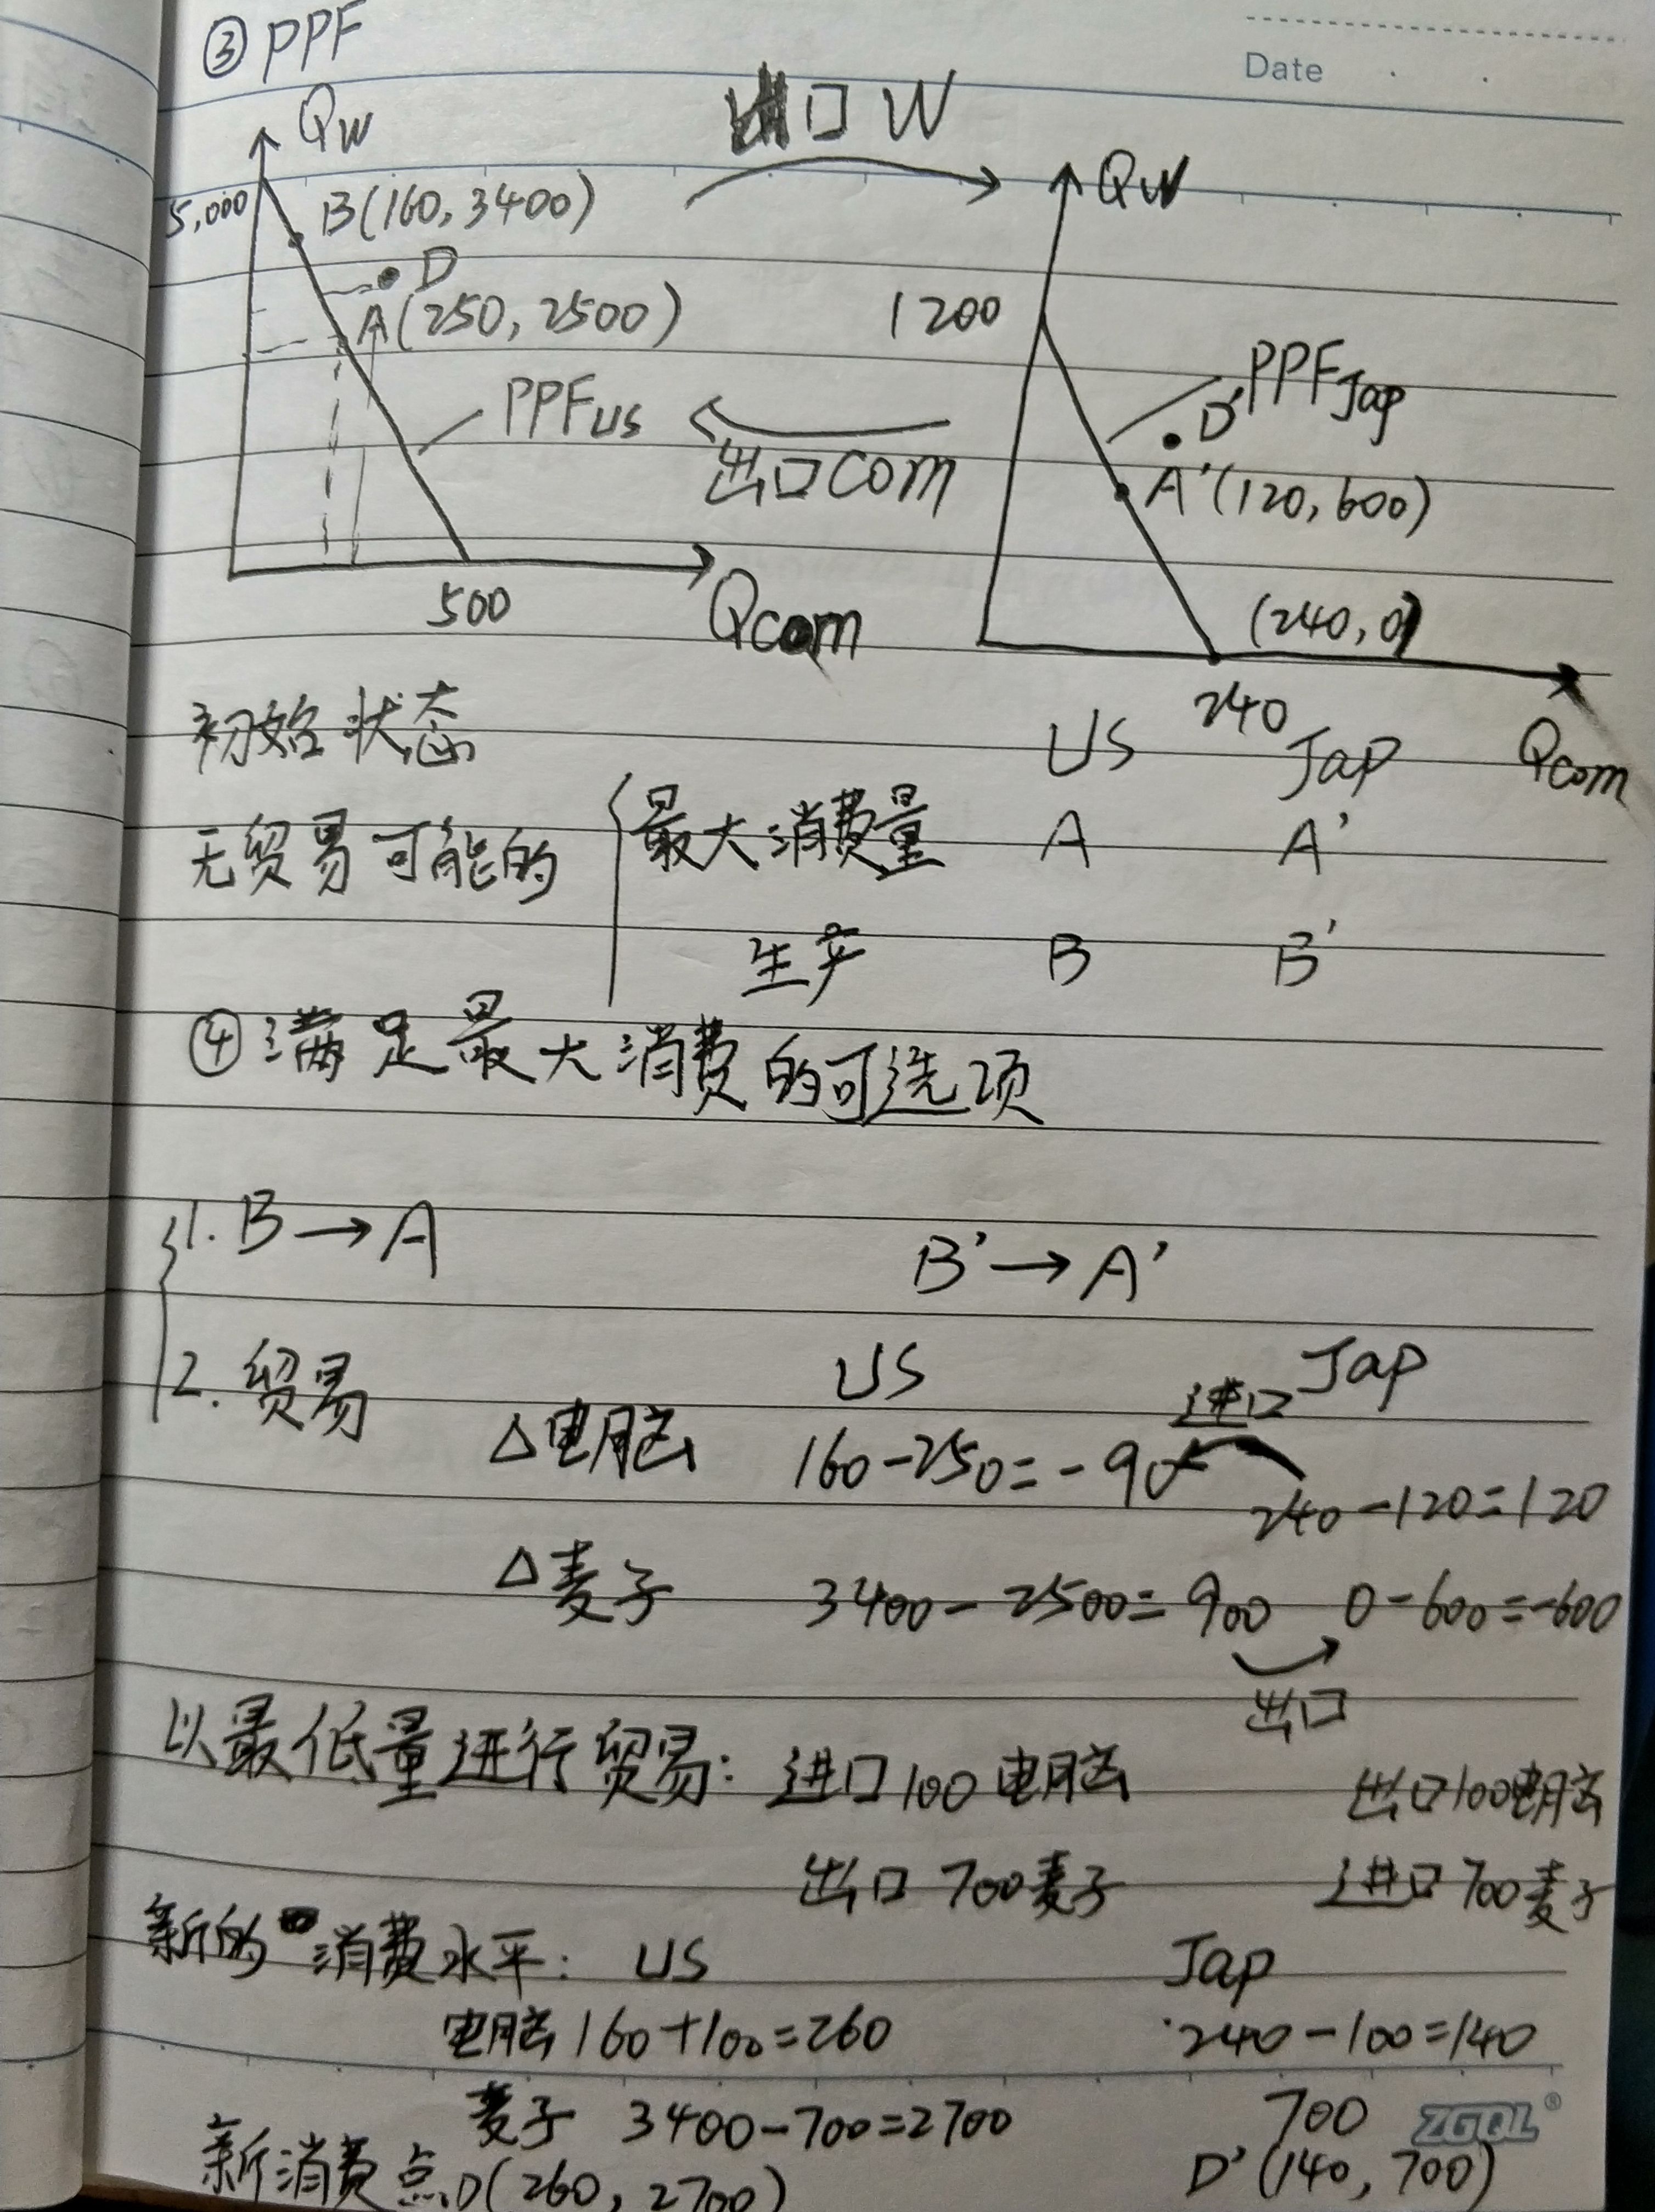 ③ PPF
Date
进口 W
Qw
Qw
5,000
B(160, 3400)
D
A(250, 2500)
1200
PPFJap
PPFus
D'
出口com
A'(120, 600)
(240, 0)
500
Qcom
240
Qcom
初始状态
US Jap
无贸易可能的
最大消费量 A A'
生产 B B'
④ 满足最大消费的可选项
1. B → A B' → A'
2. 贸易 US Jap
进口
△电脑 160-250=-90 240-120=120
△麦子 3400-2500=900 0-600=-600
出口
以最低量进行贸易: 进口100电脑 出口100电脑
出口 700麦子 进口700麦子
新的消费水平: US Jap
电脑 160+100=260 240-100=140
麦子 3400-700=2700 700
ZGQL®
新消费点D(260, 2700) D'(140, 700)